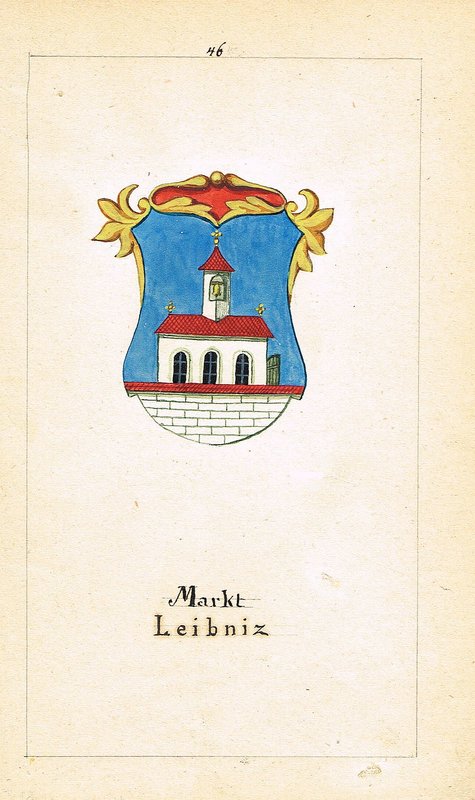 46
Markt
Leibniz